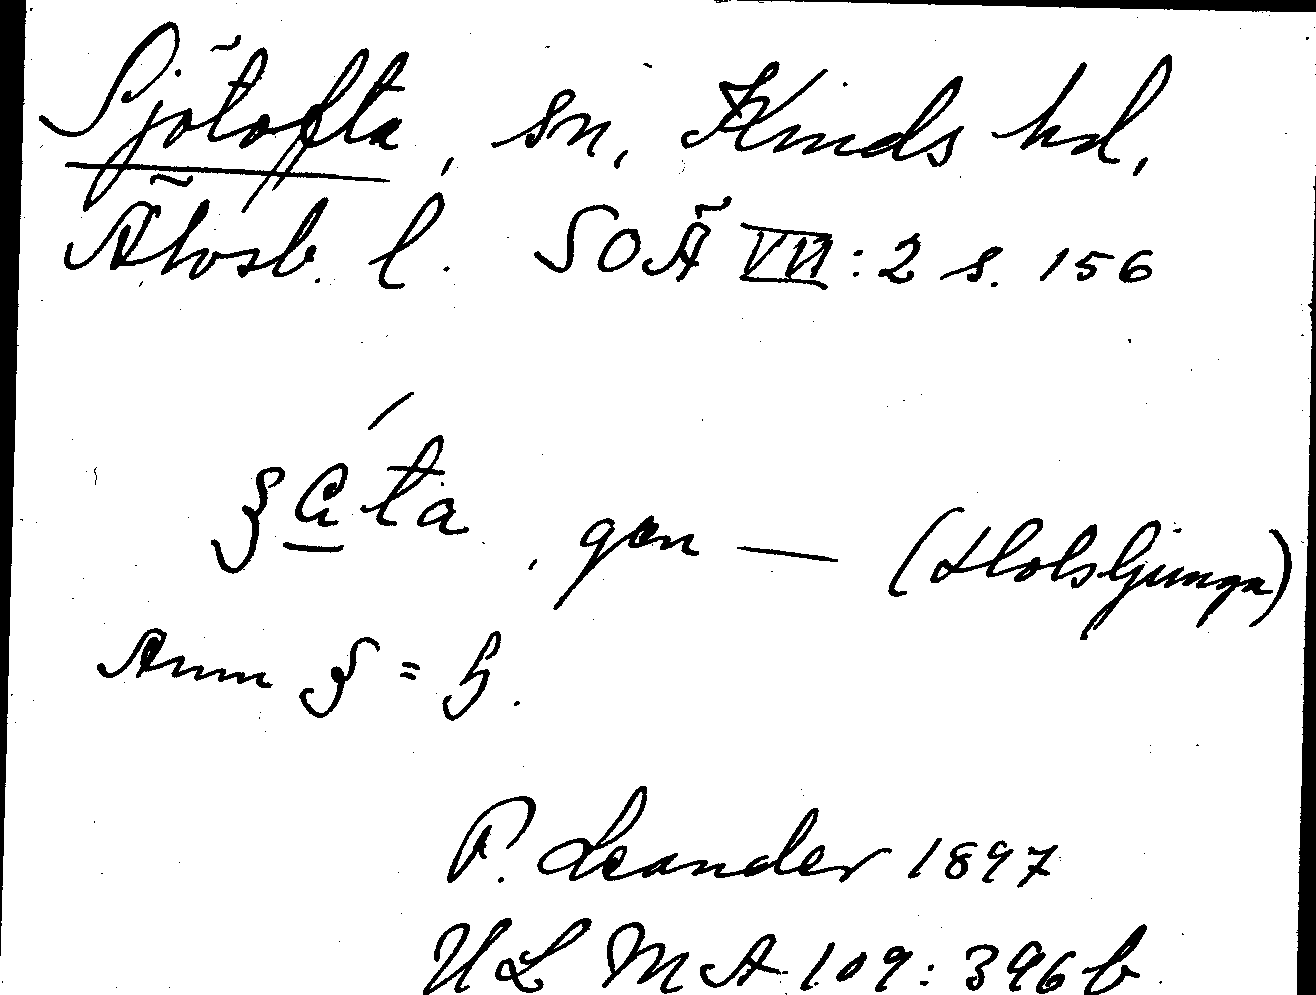 Sjötofta, sn, Kinds hd,
Älvsb. l. SOÄ VII:2 s. 156
, gen — (Holsljunga)
Anm
P. Leander 1897
ULMA 109:396b